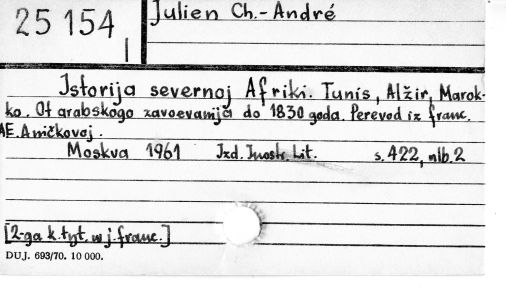 25 154
I
Julien Ch.-André
Istorija severnoj Afriki. Tunis, Alžir, Marok-
ko. Ot arabskogo zavoevanija do 1830 goda. Perevod iz franc.
AE. Aničkovoj.
Moskva 1961 Izd. Inostr. Lit. s. 422, nlb. 2
[2-ga k. tyt. w j. franc.]
DUJ. 693/70. 10 000.